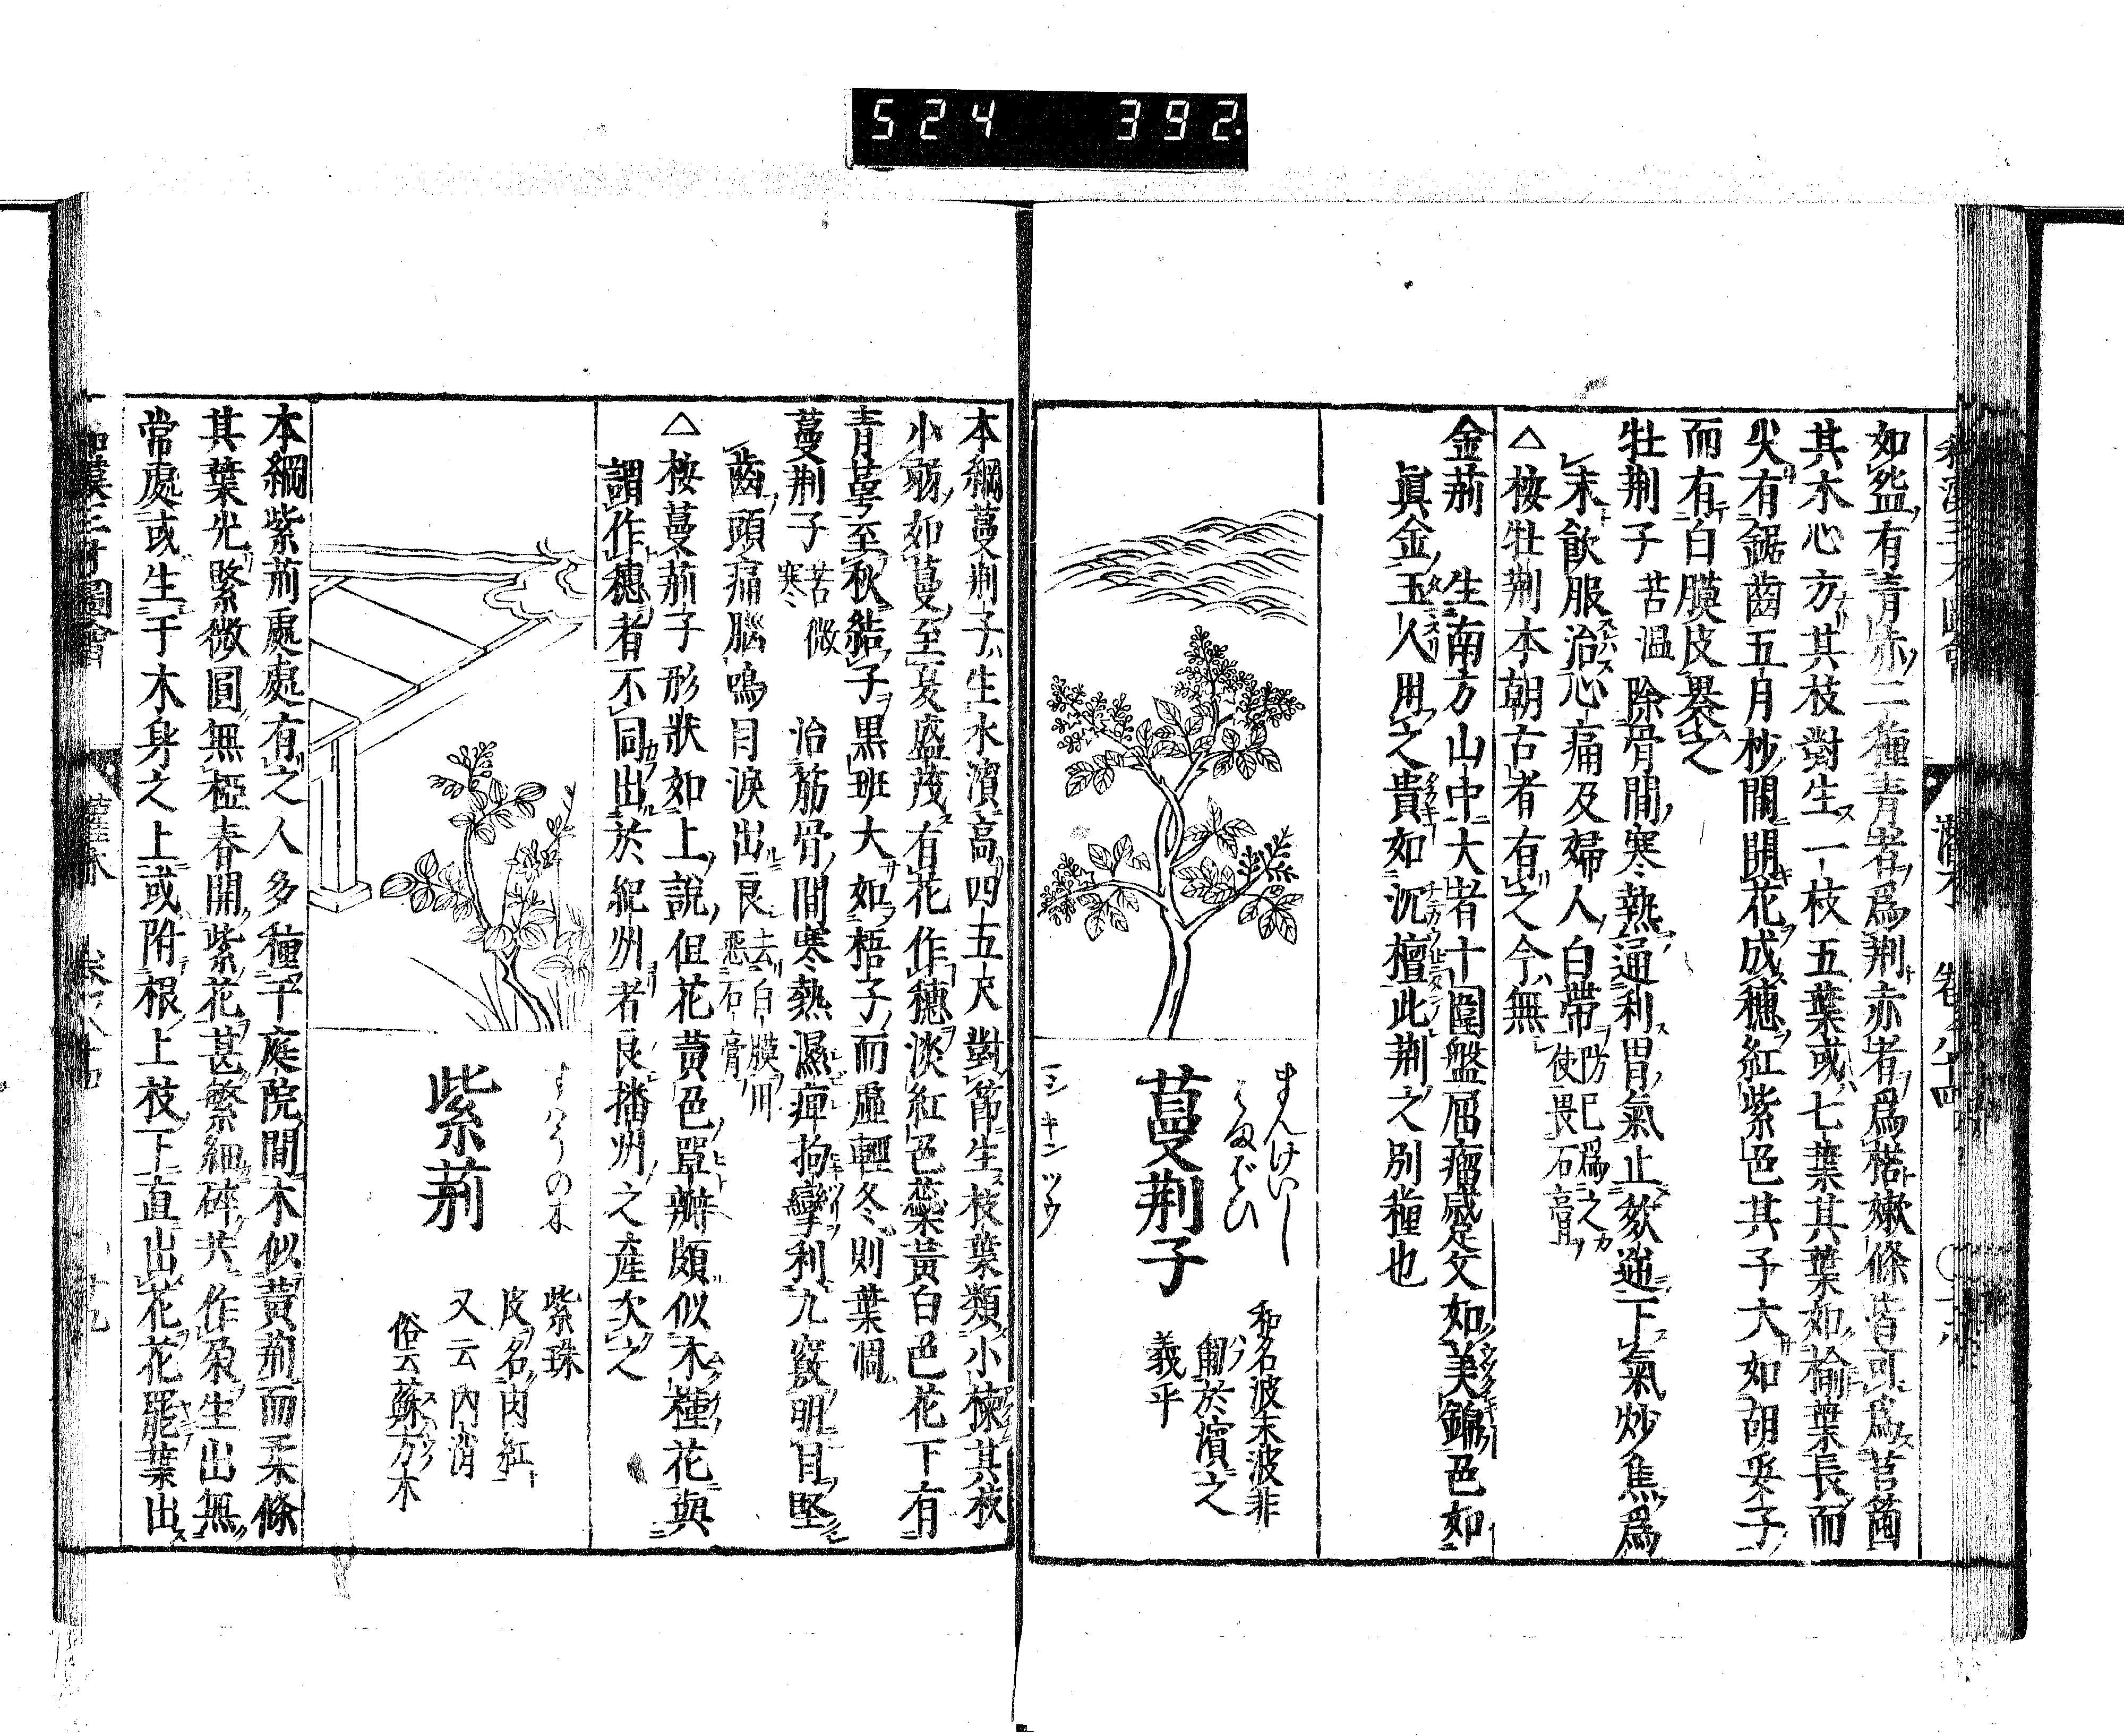 524 392
如盌有青赤二種青者爲荆赤者爲楛嫩條皆可爲筥箘
其木心方其枝對生一枝五葉或七葉其葉如楡葉長而
尖有鋸齒五月杪間開花成穗紅紫色其子大如胡荽子
而有白膜皮褁之
牡荆子 苦温 除骨間寒熱通利胃氣止欬逆下氣炒焦爲
末飲服治心痛及婦人白帶 防已爲之使畏石膏
△桉牡荆本朝古者有之今無
金荊 生南方山中大者十圍盤屈瘤蹙文如美錦色如
眞金玉人用之貴如沉檀此荆之别種也
まんけいし
はまばひ
蔓荆子
和名波末波非
匍於濱之
義乎
ミシキンツウ
本綱蔓荆子生水濱高四五尺對節生枝葉類小楝其枝
小弱如蔓至夏盛茂有花作穗淡紅色蘂黃白色花下有
青蕚至秋結子黒斑大如梧子而虚輕冬則葉凋
蔓荆子 苦微寒 治筋骨間寒熱濕痺拘攣利九竅明目堅
齒頭痛腦鳴目淚出良 去白膜用惡石膏
△桉蔓荊子形狀如上說但花黄色單瓣頗似木槿花與
謂作穗者不同出於紀州者良播州之產次之
すはうの木
紫荊
紫珠
皮名肉紅
又云内消
俗云蘇方木
本綱紫荊處處有之人多種于庭院間木似黄荊而柔條
其葉光緊微圓無椏春開紫花甚繁細碎共作朶生出無
常處或生于木身之上或附根上枝下直出花花罷葉出
和漢三才圖會 灌木 卷八十四